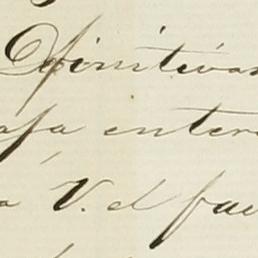 Definitivas
asa entera
a V. el fav